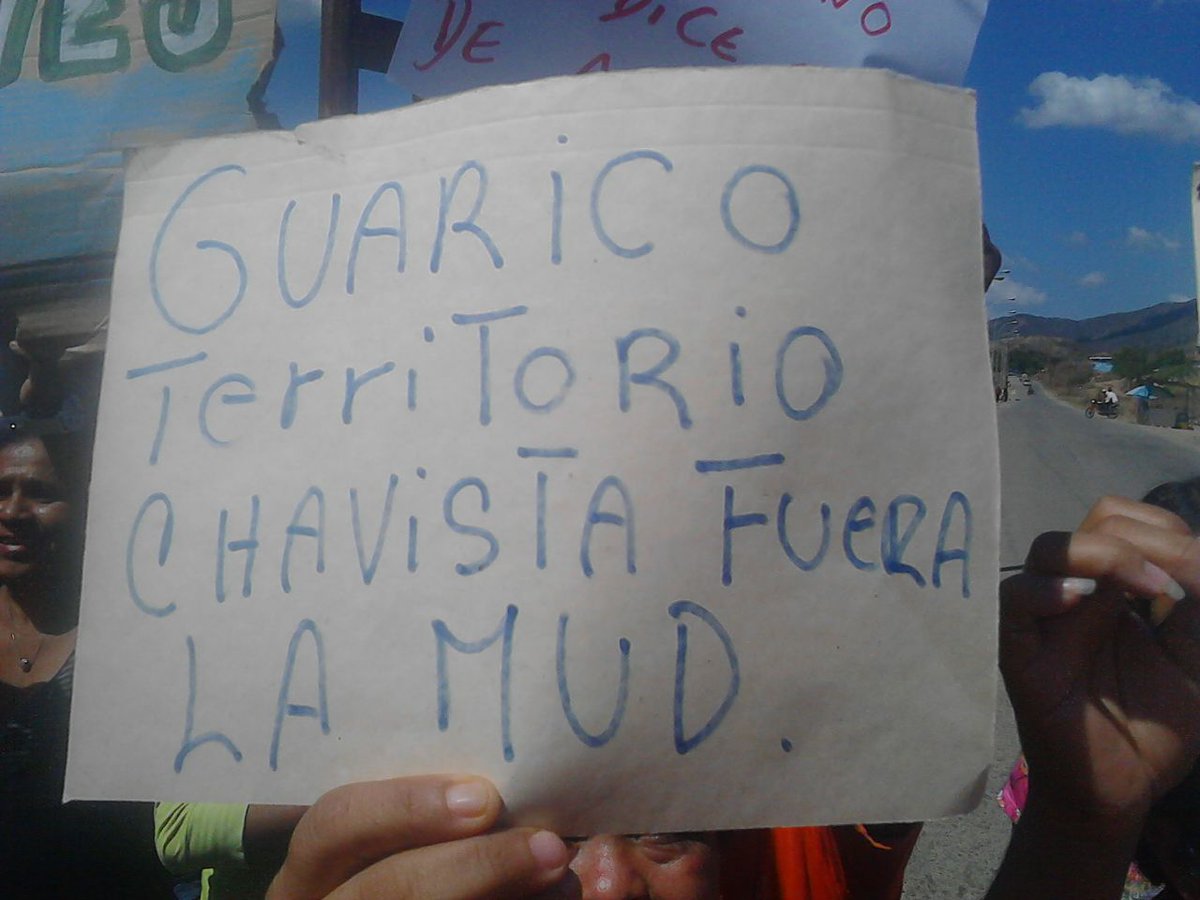 DE DICE
GUARiCO
TerriTORiO
CHAViSTA FUERA
LA MUD.